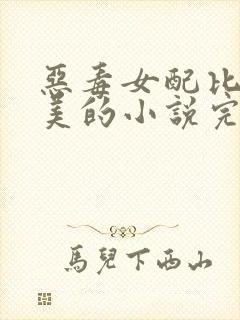 惡毒女配比
美的小說完
馬兒下西山